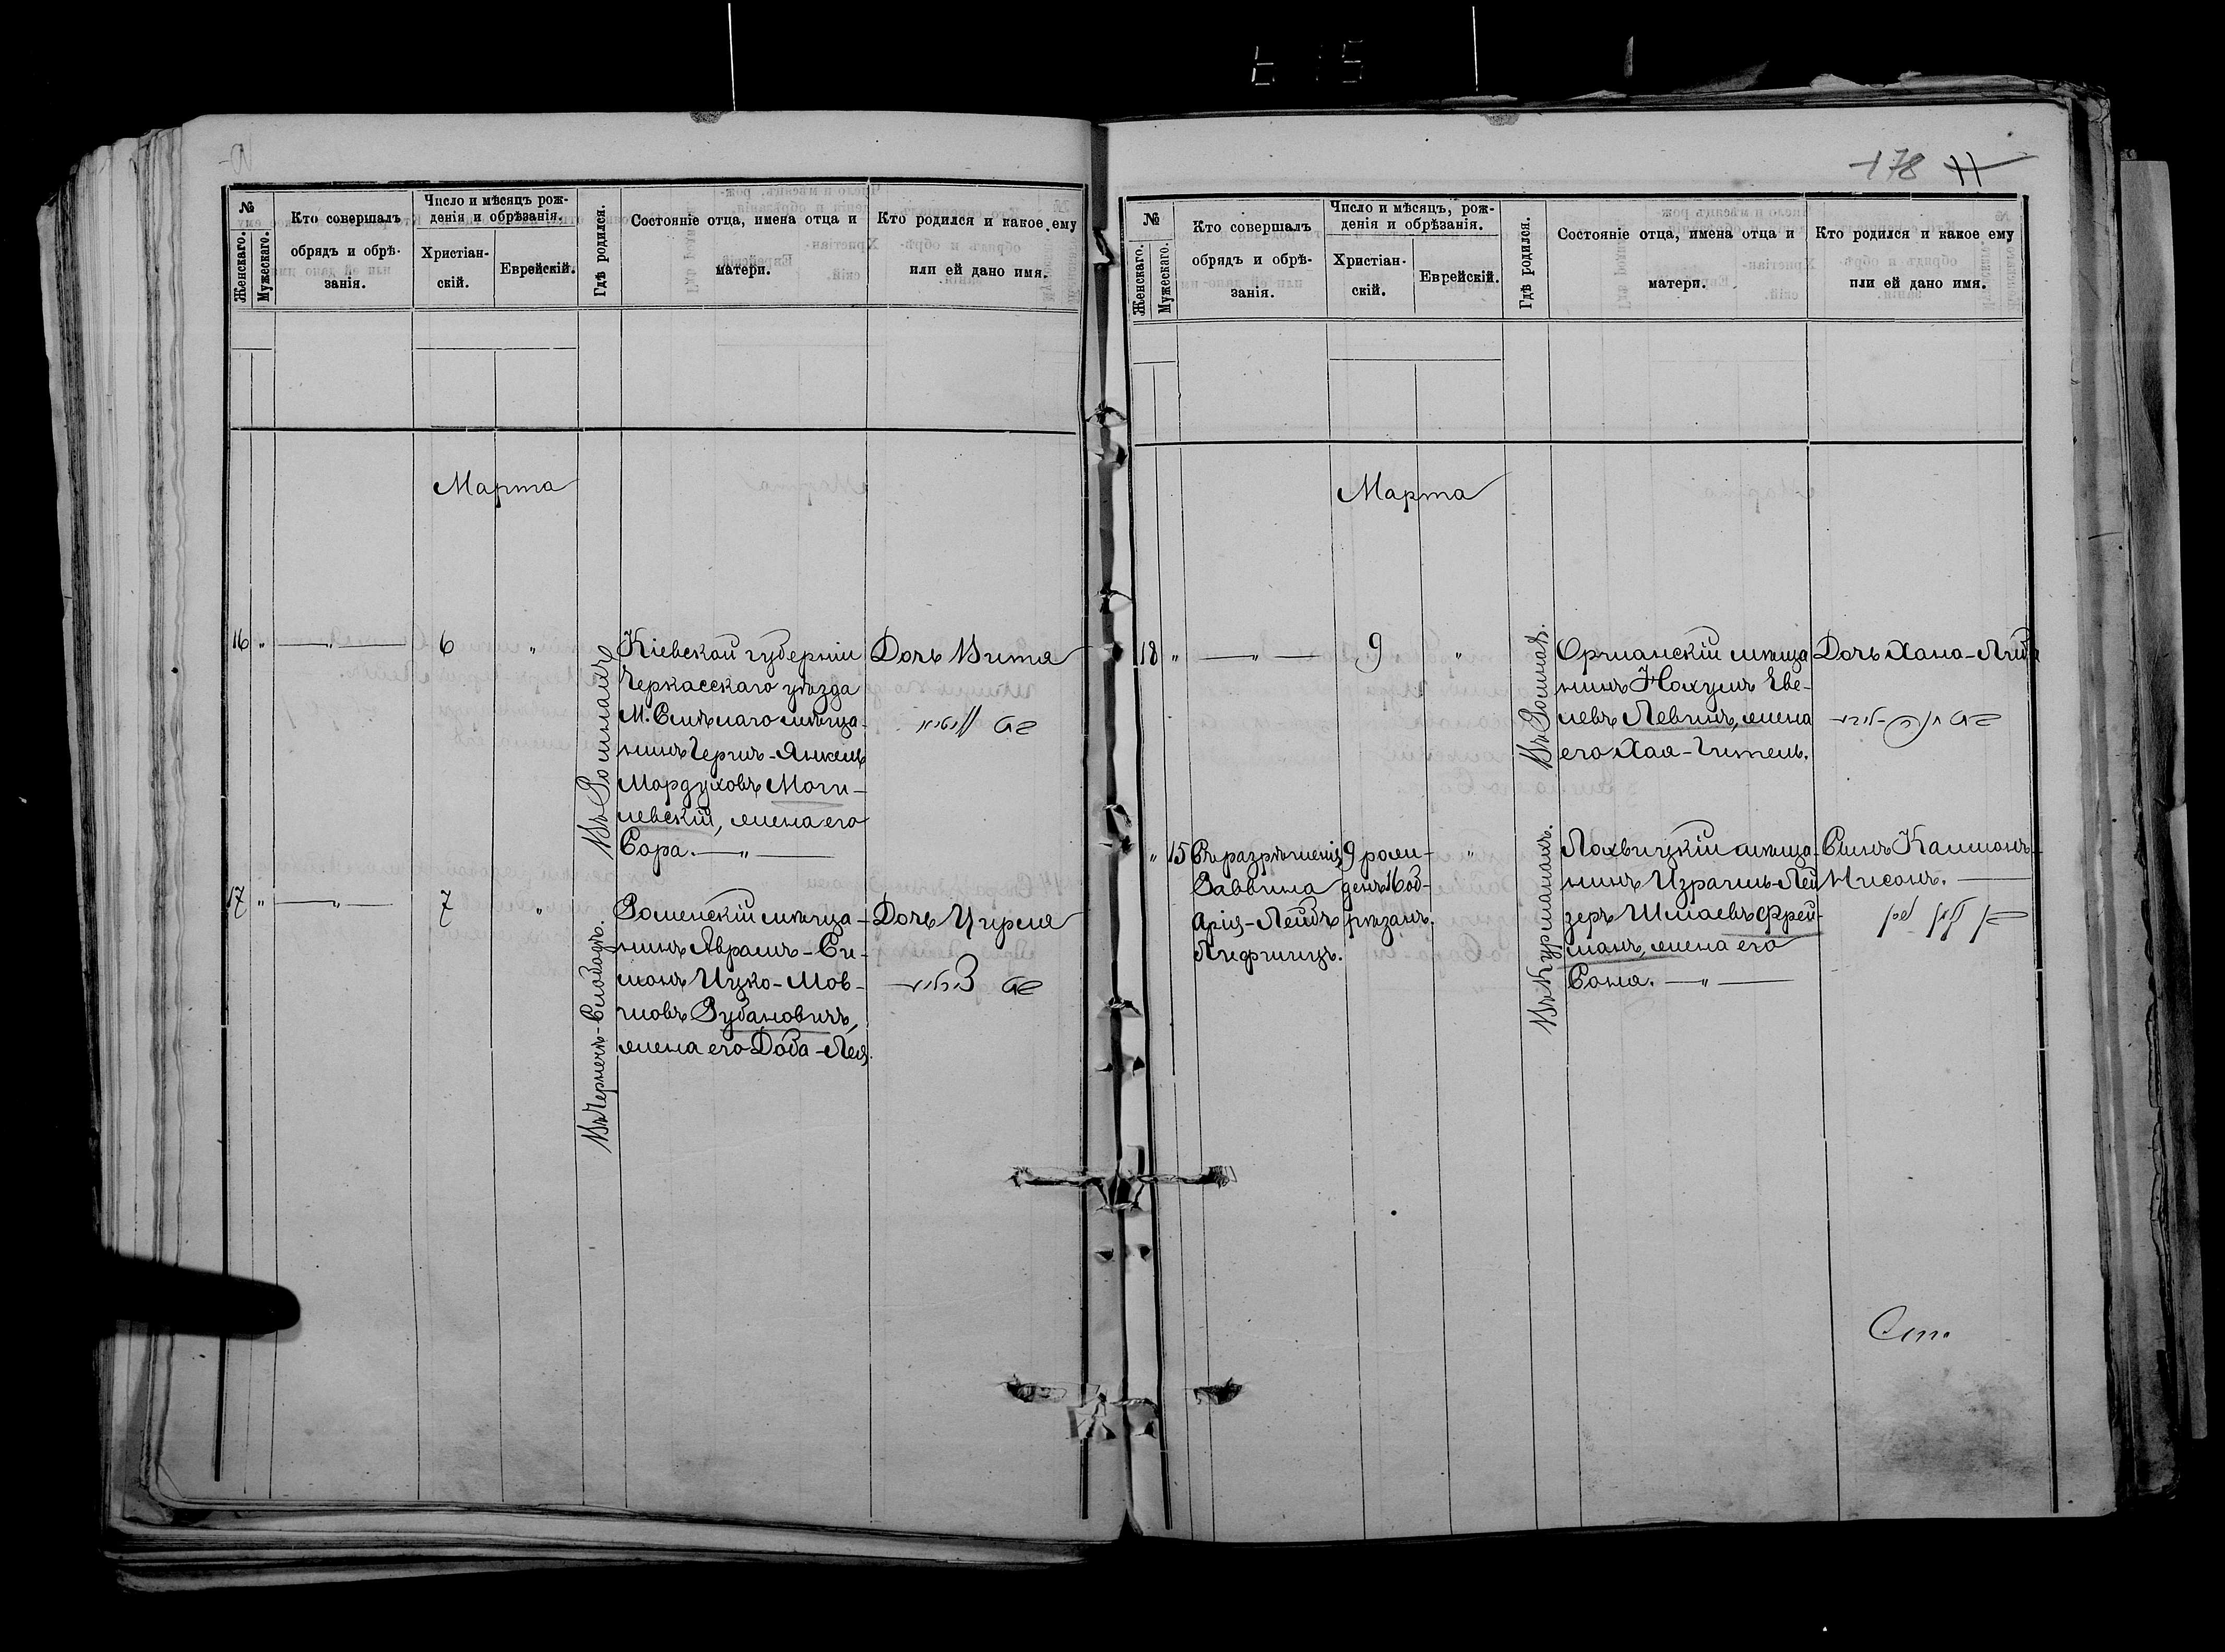 №
Женскаго.
Мужескаго.
Кто совершалъ
обрядъ и обрѣ-
занія.
Число и мѣсяцъ рож-
денія и обрѣзанія.
Христіан-
скій.
Еврейскій.
Гдѣ родился.
Состояніе отца, имена отца и
матери.
Кто родился и какое ему
или ей дано имя.
Марта
16 " —"— 6 "
Въ Ромнахъ
Кіевской губерніи
Черкасскаго уѣзда
М. Смѣлаго мѣща-
нинъ Гершъ-Янкель
Мордуховъ Моги-
левскій, жена его
Сора. —"—
Дочь Вита
בת
17 " —"— 7 "
Въ Чернечь-Слободѣ.
Роменскій мѣща-
нинъ Абрамъ-Си-
монъ Ицко-Мов-
шовъ Зубановичъ,
жена его Доба-Лея.
Дочь Цирля
בת
178 11
№
Женскаго.
Мужескаго.
Кто совершалъ
обрядъ и обрѣ-
занія.
Число и мѣсяцъ, рож-
денія и обрѣзанія.
Христіан-
скій.
Еврейскій.
Гдѣ родился.
Состояніе отца, имена отца и
матери.
Кто родился и какое ему
или ей дано имя.
Марта
18 " —"— 9 "
Въ Ромнах.
Оршанскій мѣща
нинъ Нохумъ Еве-
левъ Левинъ, жена
его Хая-Гитель.
Дочь Хана-Либа
בת
" 15
Съ разрѣшенія
Раввина
Арія-Лейбъ
Лифшицъ.
9 рож-
денъ 16 об-
рѣзанъ.
"
Въ Курманахъ.
Лохвицкій мѣща-
нинъ Израиль-Лей
зеръ Шмаевъ Фрей-
манъ, жена его
Соня. —"—
Сынъ Калмонъ-
Нисонъ. —
בן קלמן ניסן